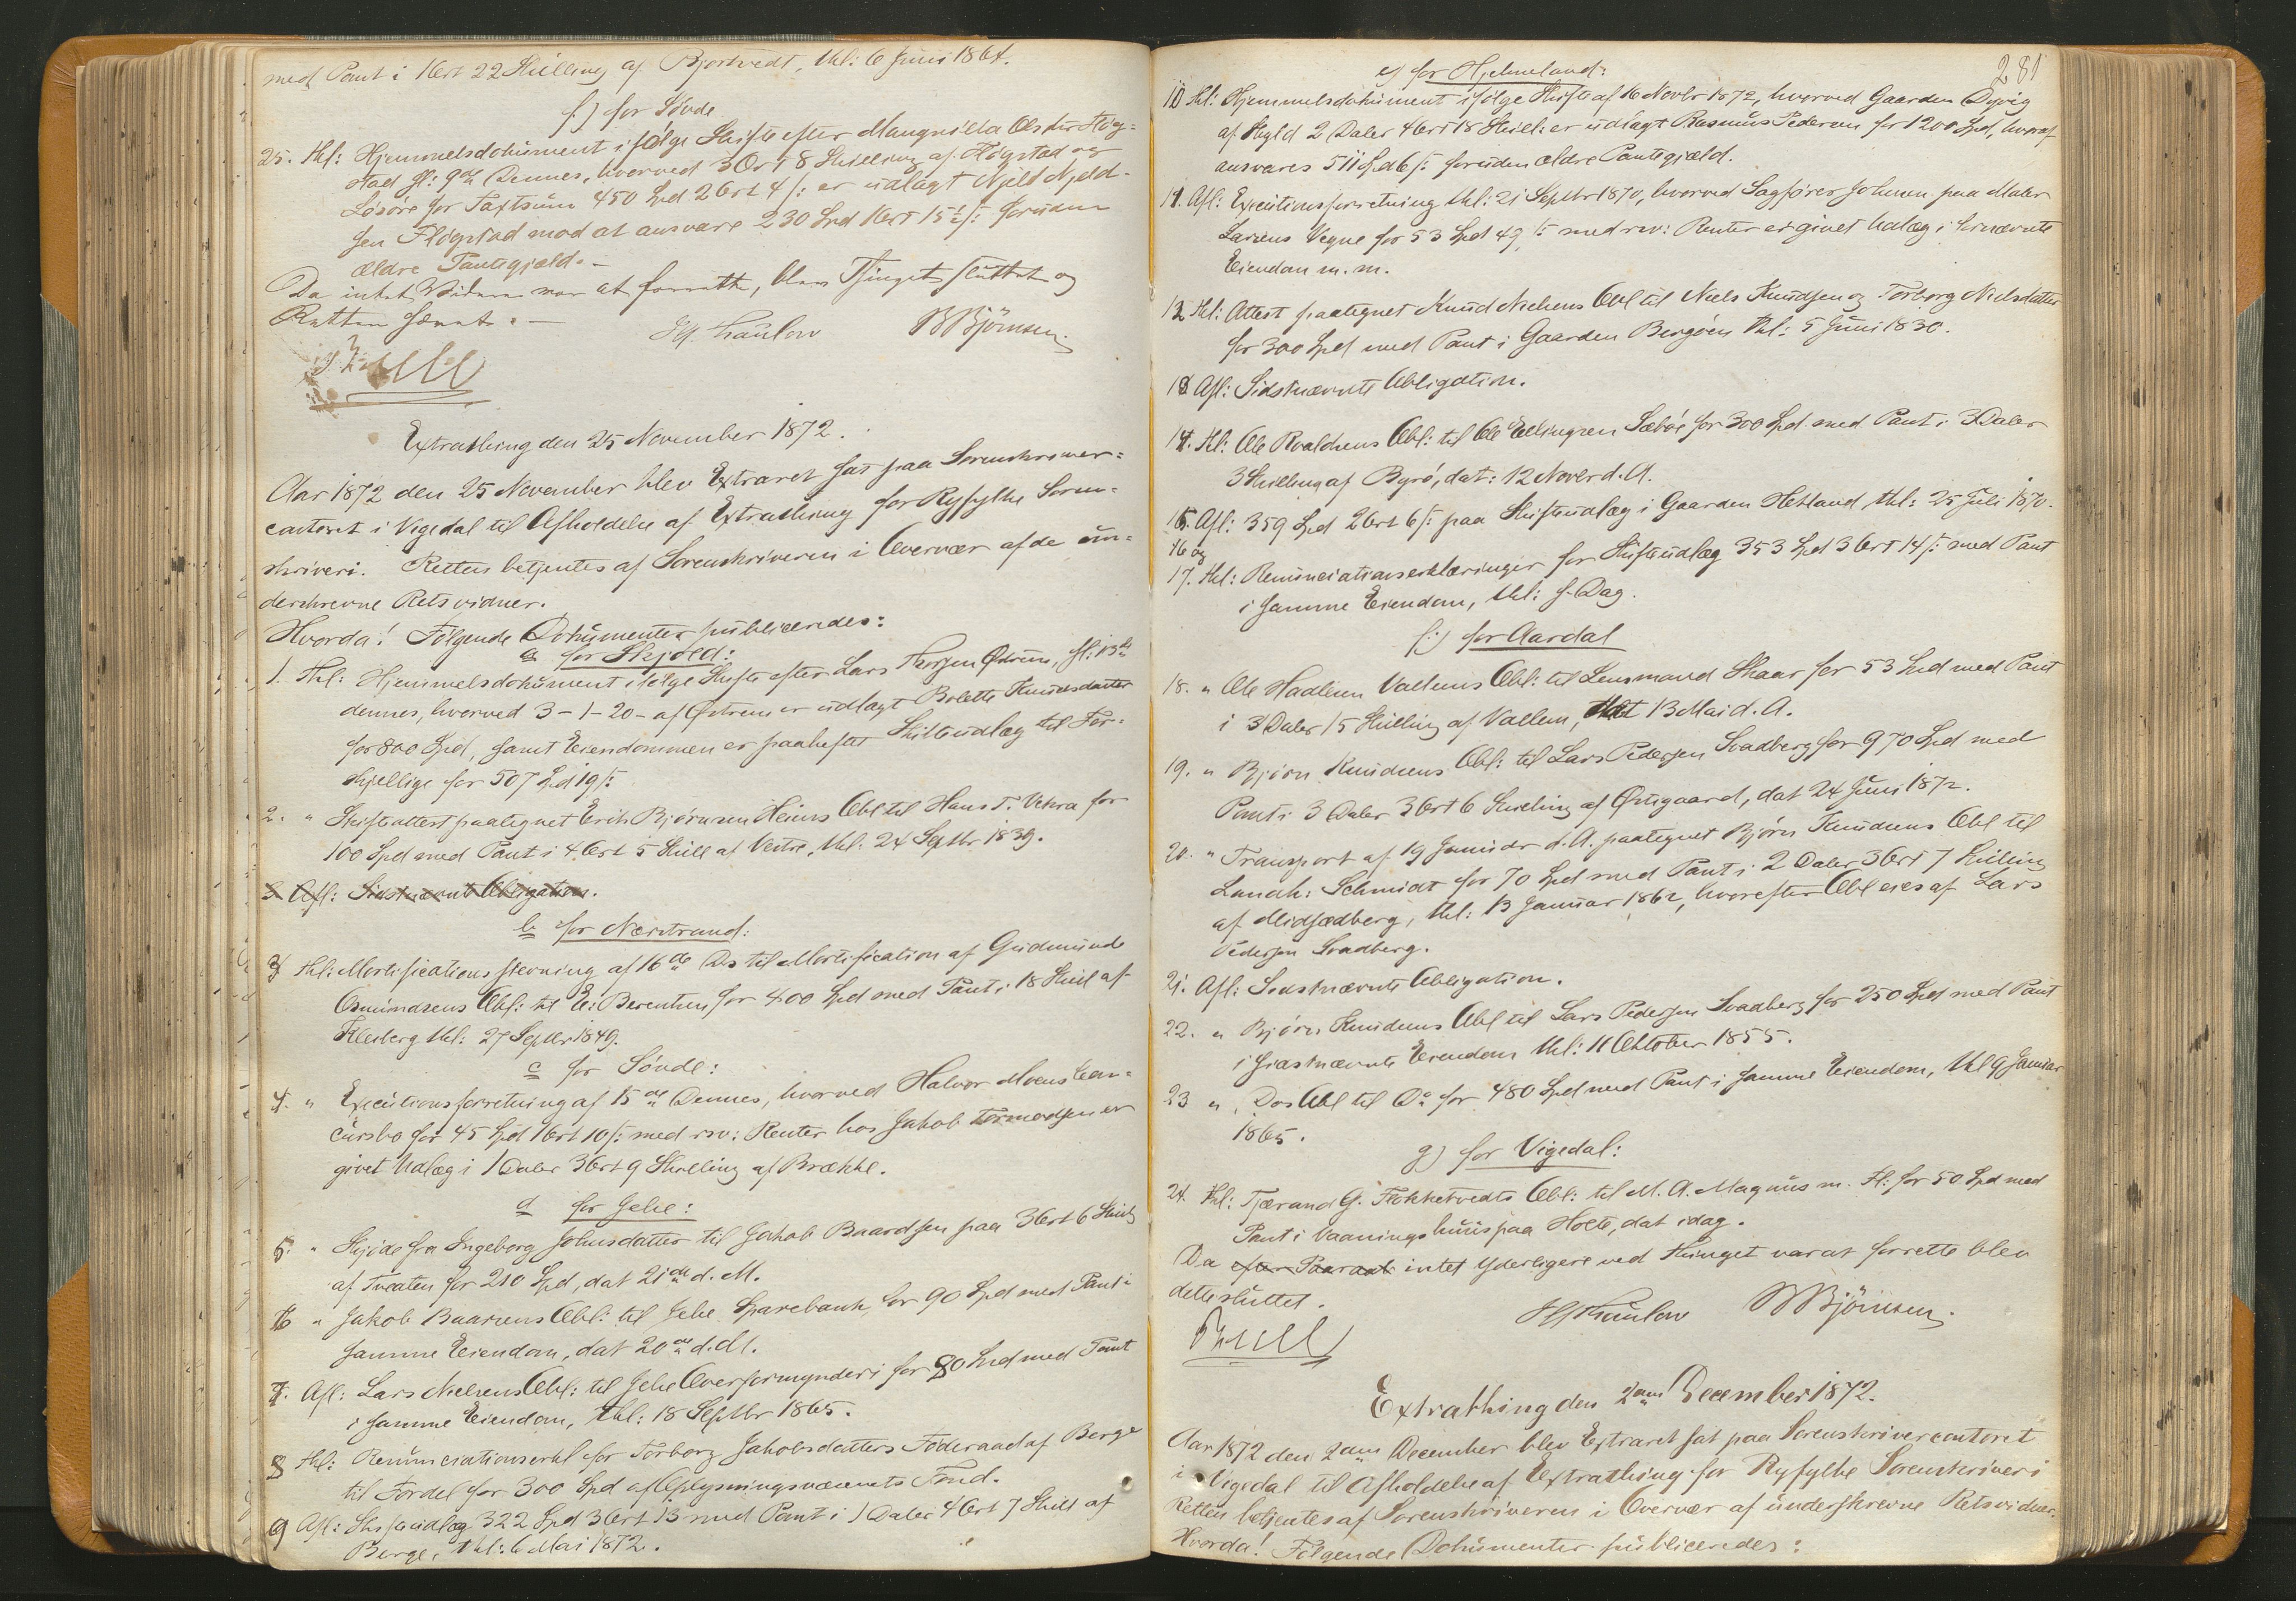 med Pant i 1 Ort 22 Skilling af Bjortvedt, thl: 6 Juni 1864.
f) for Søvde
25. thl: Hjemmelsdokument ifølge Skifte efter Mangnilda Olsdtr Høg=
stad fl: 9de Dennes, hvorved 3 Ort 8 Skilling af Høgstad og
Løsøre for Taxtsum 450 Spd 2 Ort 4 /: er udlagt Njeld Njeld-
sen Flogstad mod at ansvare 230 Spd 1 Ort 15½ /: foruden
ældre Pantegjæld.-
Da intet Videre var at forrette, blev Thinget sluttet og
Retten hævet.-
Hf. Thaulow BBjörnsen.
Extrathing den 25 November 1872.
Aar 1872 den 25 November blev Extraret sat paa Sorenskriver=
contoret i Vigedal til Afholdelse af Extrathing for Ryfylke Soren=
skriveri. Retten betjentes af Sorenskriveren i Overvær af de un=
derskrevne Retsvidner.
Hvorda! Følgende Dokumenter publiceredes:
a for Skjold:
1. Thl: Hjemmelsdokument ifølge Skifte efter Lars Thorsen Østrem, fl: 13de
dennes, hvorved 3-1-20- af Østrem er udlagt Bolette Knudsdatter
for 800 Spd, samt Eiendommen er paaheftet Skifteudlæg til For=
skjellige for 507 Spd 19 /:
2. " Skifteattest paategnet Erik Bjørnsen Heims Obl til Hans T. Vikra for
100 Spd med Pant i 4 Ort 5 Skill af Vestre, thl. 24 Septbr 1839.
3 Afl: Sidstnævnte Obligation.
b for Nærstrand:
3 thl: Mortificationsstevning af 16de Ds til Mortification af Gudmund
Osmundsens Obl: til E: Berentsen for 400 Spd med Pant i 18 Skill af
Kleiberg thl: 27 Septbr 1849.
c for Søvde:
4. " Executionsforretning af 15de Dennes, hvorved Halvor Moens Con=
cursbo for 45 Spd 1 Ort 10 /: med rsv: Renter hos Jakob Tormodsen er
givet Udlæg i 1 Daler 3 Ort 9 Skilling af Brække.
d for Jelse:
5. " Skjøde fra Ingeborg Johnsdatter til Jakob Baardsen paa 3 Ort 6 Skill
af Tveaten for 210 Spd, dat 21de d. M.
6 " Jakob Baarsens Obl: til Jelse Sparebank for 90 Spd med Pant i
samme Eiendom, dat 20de d. M.
7. Afl: Lars Nielsens Obl: til Jelse Overformynderi for 80 Spd med Pant
i samme Eiendom, thl: 18 Septbr 1865.
8 thl: Renunciationserkl for Torborg Jakobsdatters Føderaad af Berge
til Fordel for 300 Spd af Oplysningsvæsenets Fond.
9 Afl: Skifteudlæg 322 Spd 3 Ort 13 med Pant i 1 Daler 4 Ort 7 Skill af
Berge, thl: 6 Mai 1872.
281
e) for Hjelmeland:
10 thl: Hjemmelsdokument ifølge Skifte af 16 Novbr 1872, hvorved Gaarden Døvig
af Skyld 2 Daler 4 Ort 18 Skill: er udlagt Rasmus Pedersen for 1200 Spd, hvoraf
ansvares 511 Spd 6 /: foruden ældre Pantegjæld.
11. Afl: Executionsforretning thl: 21 Septbr 1870, hvorved Sagfører Johnsen paa Maler
Larsens Vegne for 53 Spd 49 /: med rsv: Renter er givet Udlæg i førnævnte
Eiendom m. m.
12 thl: Attest paategnet Knud Nielsens Obl til Niels Knudsen og Torborg Nielsdatter
for 300 Spd med Pant i Gaarden Bergøen thl: 5 Juni 1830.
13 Afl: Sidstnævnte Obligation.
14. thl: Ole Roaldsens Obl: til Ole Ellingsen Sæbø for 300 Spd med Pant i 3 Daler
3 Skilling af Byrø, dat: 12 Novbr d. A.
15. Afl: 359 Spd 2 Ort 6 /: paa Skifteudlæg i Gaarden Hetland, thl: 25 Juli 1870.
16 og
17. thl: Renunciationserklæringer for Skifteudlæg 353 Spd 3 Ort 14 /: med Pant
i samme Eiendom, thl: s. Dag.
f:) for Aardal
18. " Ole Hadlesen Vallems Obl: til Lensmand Skaar for 53 Spd med Pant
i 3 Daler 15 Skilling af Vallem, dat 13 Mai d. A.
19. " Bjørn Knudsens Obl: til Lars Pedersen Svadberg for 970 Spd med
Pant i 3 Daler 3 Ort 6 Skilling af Østigaard, dat 24 Juni 1872.
20. " Transport af 19 Januar d. A. paategnet Bjørn Knudsens Obl til
Landh: Schmidt for 70 Spd med Pant i 2 Daler 3 Ort 7 Skilling
af Midsædberg, thl: 13 Januar 1862, hvorefter Obl eies af Lars
Pedersen Svadberg.
21. Afl: Sidstnævnte Obligation.
22. " Bjørn Knudsens Obl til Lars Pedersen Svadberg for 250 Spd med Pant
i sidstnævnte Eiendom thl: 11 Oktober 1855.
23 " Ds Obl til Do for 480 Spd med Pant i samme Eiendom, thl 9 Januar
1865.
g) for Vigedal:
24. thl: Tjærand G. Flokketvedts Obl: til M. A. Magnus m. Fl: for 50 Spd med
Pant i Vaaningshuus paa Holte, dat idag.
Da efter Paaraab intet yderligere ved Thinget var at forrette blev
dette sluttet.
Hf Thaulow BBjörnsen.
Extrathing den 2den December 1872.
Aar 1872 den 2den December blev Extraret sat paa Sorenskrivercontoret
i Vigedal til Afholdelse af Extrathing for Ryfylke Sorenskriveri
Retten betjentes af Sorenskriveren i Overvær af underskrevne Retsvidner.
Hvorda! Følgende Dokumenter publiceredes: